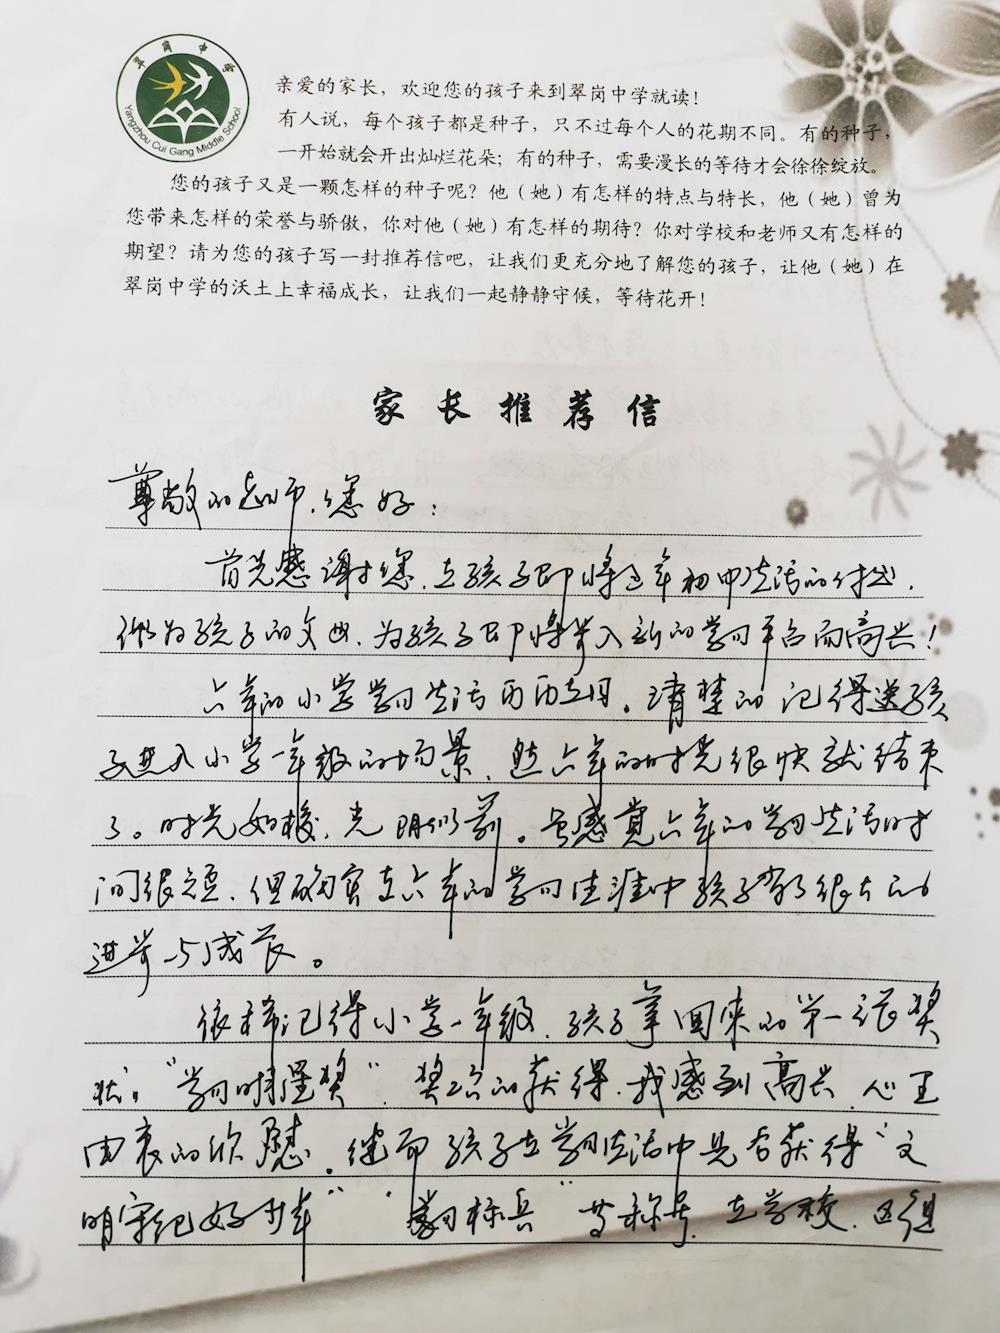 翠岗中学
Yangzhou Cui Gang Middle School
亲爱的家长，欢迎您的孩子来到翠岗中学就读！
有人说，每个孩子都是种子，只不过每个人的花期不同。有的种子，
一开始就会开出灿烂花朵；有的种子，需要漫长的等待才会徐徐绽放。
您的孩子又是一颗怎样的种子呢？他（她）有怎样的特点与特长，他（她）曾为
您带来怎样的荣誉与骄傲，你对他（她）有怎样的期待？你对学校和老师又有怎样的
期望？请为您的孩子写一封推荐信吧，让我们更充分地了解您的孩子，让他（她）在
翠岗中学的沃土上幸福成长，让我们一起静静守候，等待花开！
家长推荐信
尊敬的老师，您好：
首先感谢您，在孩子即将三年初中生活的付出，
作为孩子的父母，为孩子即将步入新的学习平台而高兴！
六年的小学学习生活历历在目。清楚的记得送孩
子进入小学一年级的场景，然六年的时光很快就结束
了。时光如梭，光阴似箭。虽感觉六年的学习生活时
间很短，但确实在六年的学习生涯中孩子有了很大的
进步与成长。
依稀记得小学一年级，孩子拿回来的第一张奖
状，“学习明星奖”，奖状的获得，我感到高兴，心里
由衷的欣慰。继而孩子在学习生活中是否获得“文
明守纪好少年”“学习标兵”等称号，在学校，区得